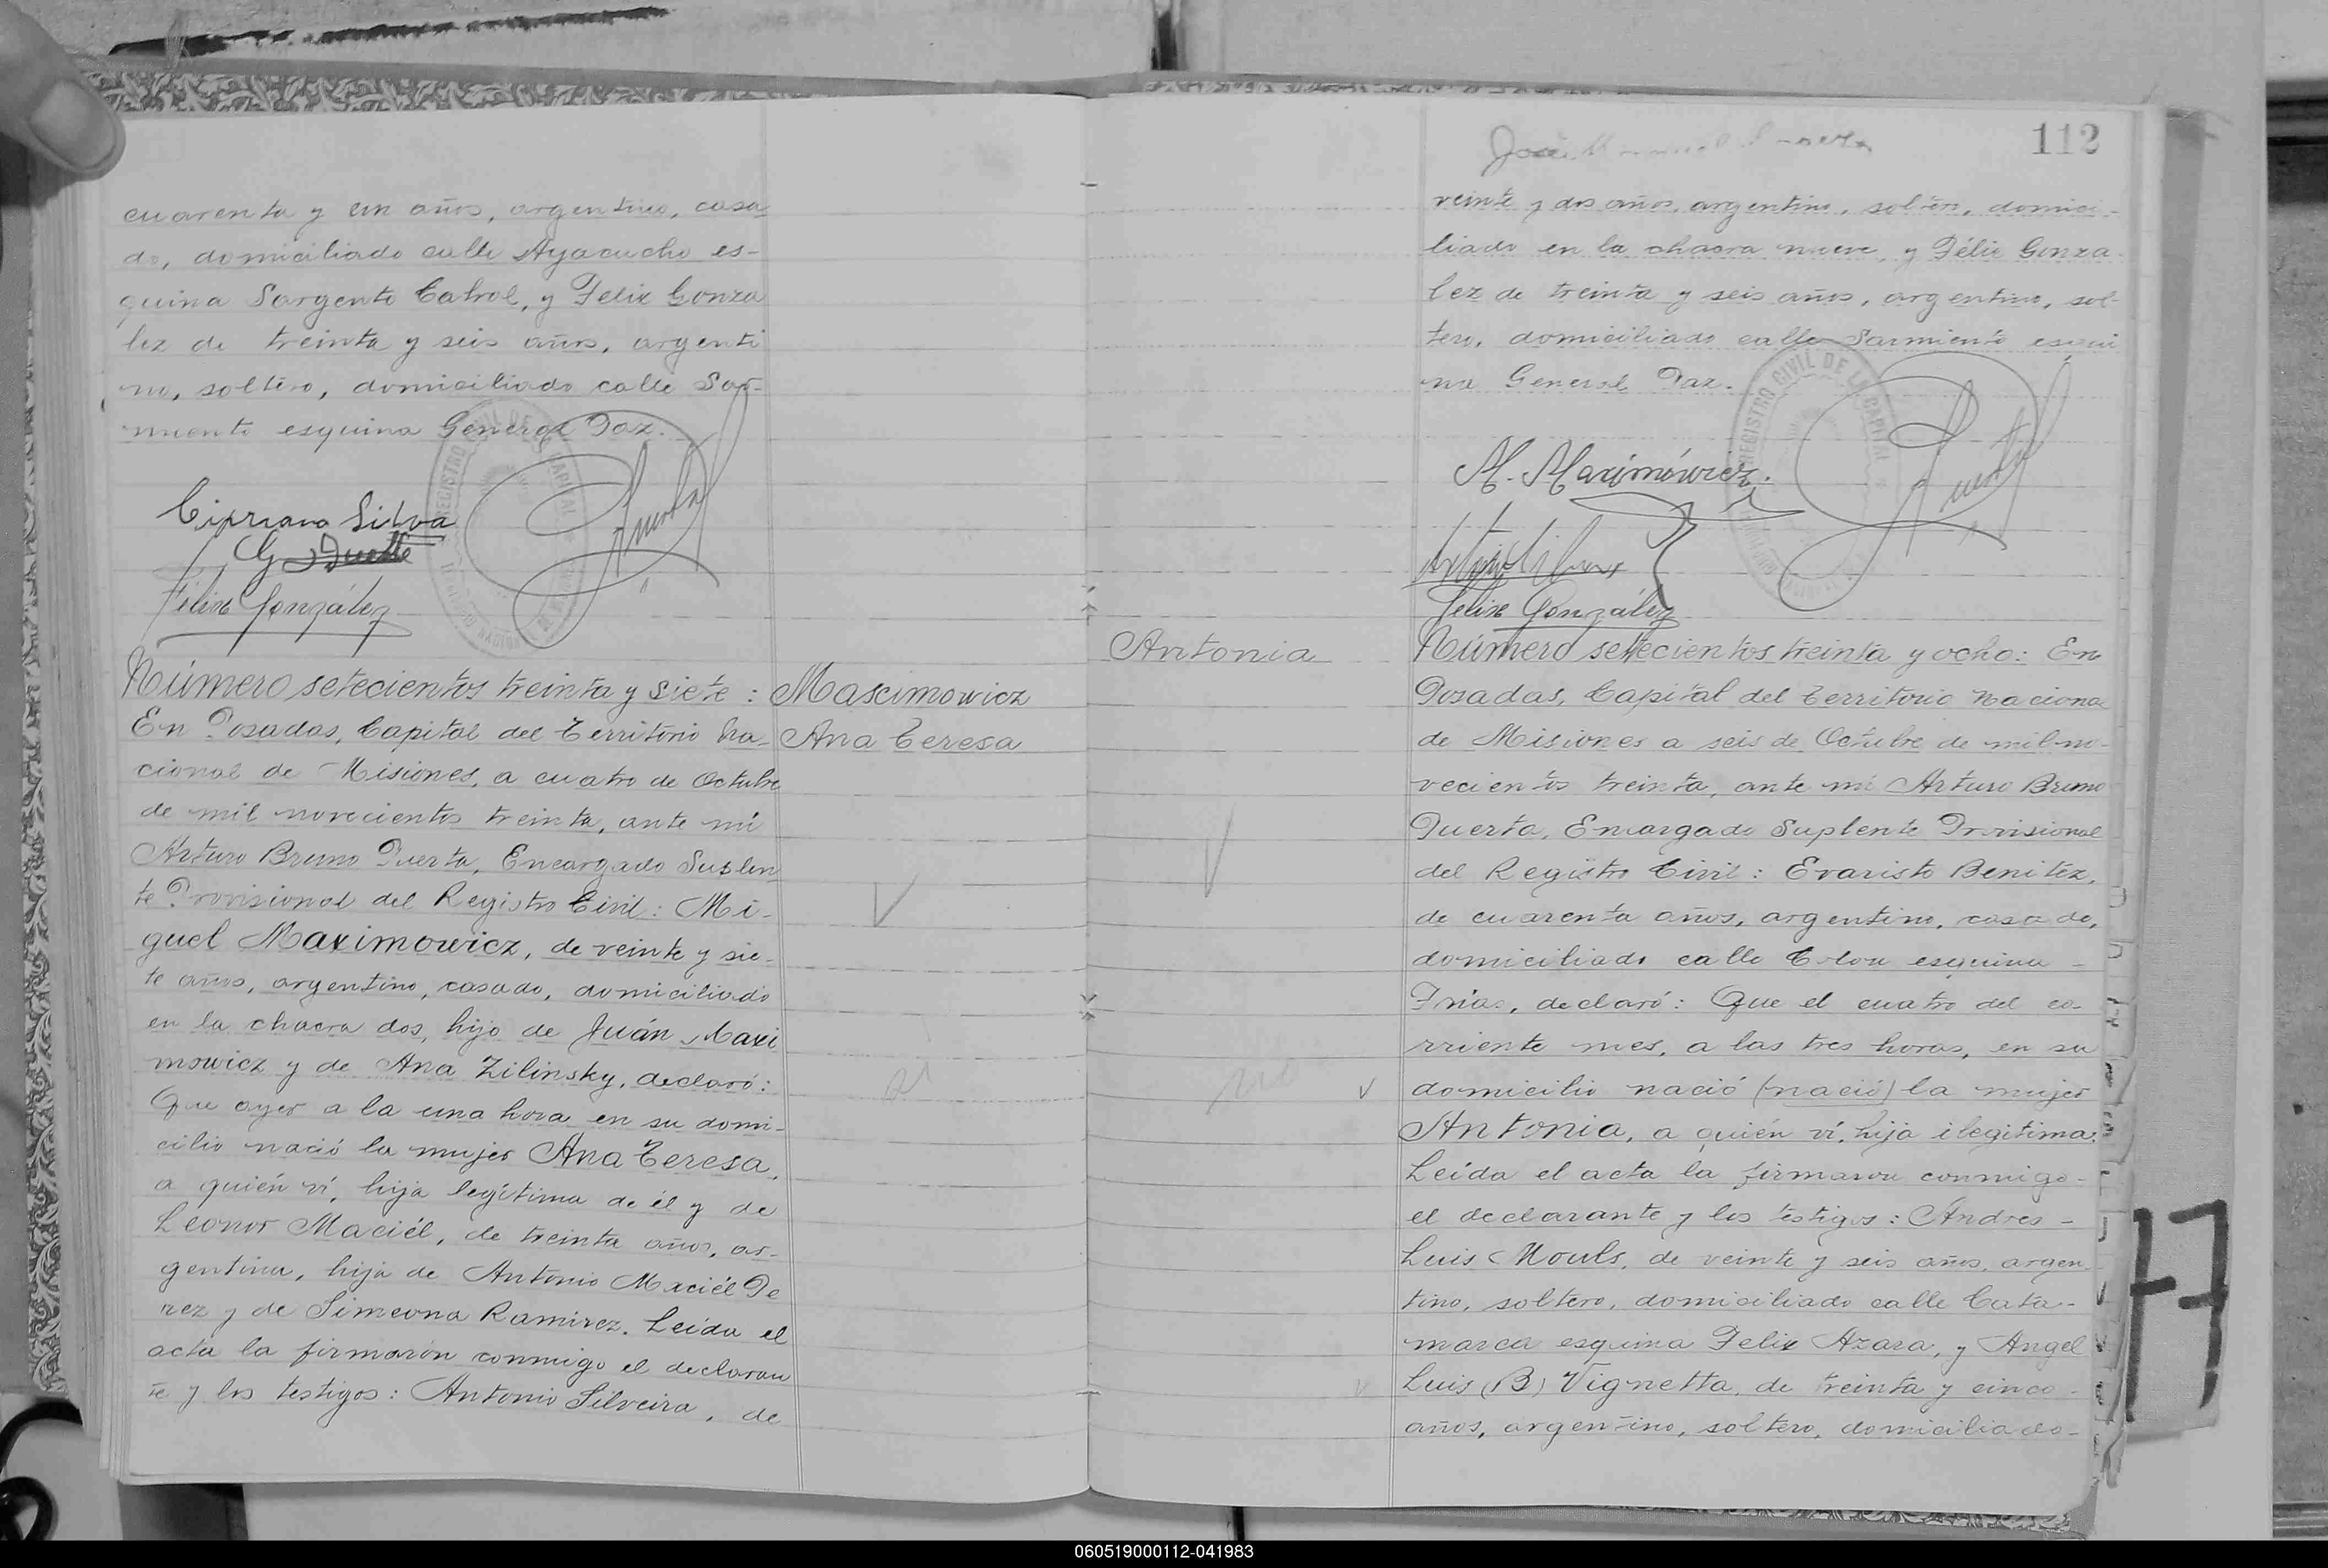 cuarenta y un años, argentino, casa
do, domiciliado calle Ayacucho es-
quina Sargento Cabral, y Felix Gonza
lez de treinta y seis años, argenti
no, soltero, domiciliado calle Sar-
miento esquina General Paz.
Cipriano Silva
Félix González
Número setecientos treinta y siete:
En Posadas, Capital del Territorio Na-
cional de Misiones, a cuatro de Octubre
de mil novecientos treinta, ante mí
Arturo Bruno Puerta, Encargado Suplen
te Provisional del Registro Civil: Mi-
guel Maximowicz, de veinte y sie-
te años, argentino, casado, domiciliado
en la chacra dos, hijo de Juán Maxi
mowicz y de Ana Zilinsky, declaró:
Que ayer a la una hora en su domi-
cilio nació la mujer Ana Teresa,
a quién ví, hija legítima de él y de
Leonor Maciél, de treinta años, ar-
gentina, hija de Antonio Maciél Pe
rez y de Simeona Ramirez. Leida el
acta la firmarón conmigo el declaran
te y los testigos: Antonio Silveira, de
Mascimowicz
Ana Teresa
112
veinte y dos años, argentino, soltero, domici-
liado en la chacra nueve, y Félix Gonza-
lez de treinta y seis años, argentino, sol-
tero, domiciliado calle Sarmiento esqui
na General Paz.
REGISTRO CIVIL DE LA CAPITAL
M. Maximówicz.
Felix González
Antonia
Número setecientos treinta y ocho: En
Posadas, Capital del Territorio Naciona
de Misiones a seis de Octubre de mil no-
vecientos treinta, ante mí Arturo Bruno
Puerta, Encargado Suplente Provisional
del Registro Civil: Evaristo Benitez,
de cuarenta años, argentino, casado,
domiciliado calle Colon esquina -
Frías, declaró: Que el cuatro del co-
rriente mes, a las tres horas, en su
domicilio nació (nació) la mujer
Antonia, a quién ví, hija ilegitima.
Leida el acta la firmaron conmigo -
el declarante y los testigos: Andres -
Luis Mouls, de veinte y seis años, argen-
tino, soltero, domiciliado calle Cata-
marca esquina Felix Azara, y Angel
Luis (B) Vignetta, de treinta y cinco -
años, argentino, soltero, domiciliado -
060519000112-041983